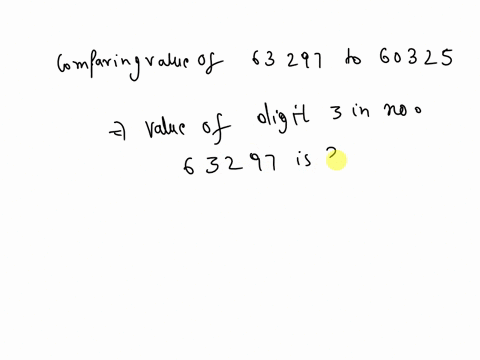 Comparing value of 63297 to 60325
⇒ value of digit 3 in no.
63297 is